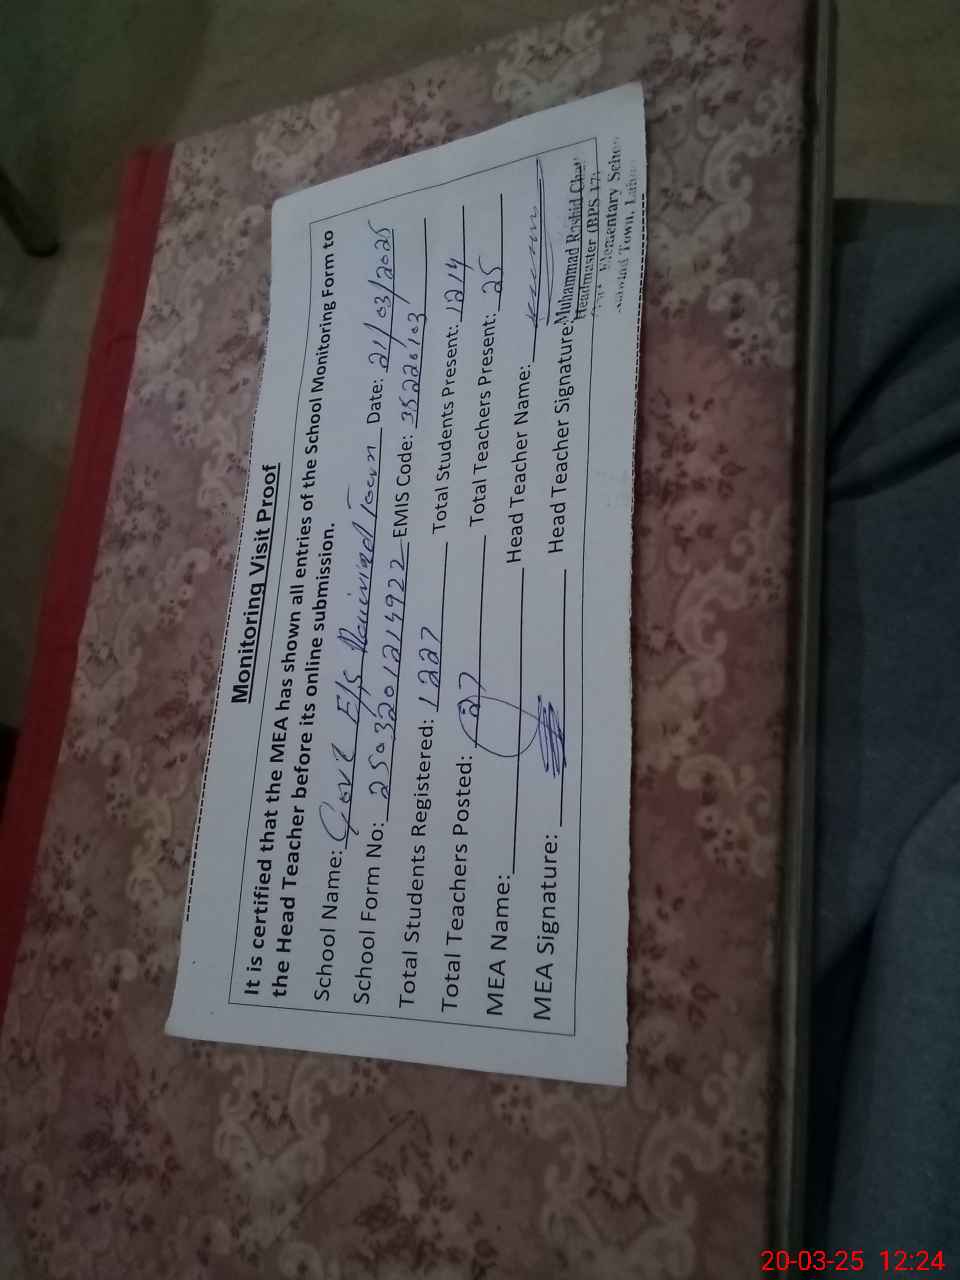 Monitoring Visit Proof
It is certified that the MEA has shown all entries of the School Monitoring Form to
the Head Teacher before its online submission.
School Name: Govt E/S Town Date: 21/03/2025
School Form No: EMIS Code: 35220103
Total Students Registered: 1227 Total Students Present: 1214
Total Teachers Posted: 27 Total Teachers Present: 25
MEA Name: Head Teacher Name:
MEA Signature: Head Teacher Signature:
Muhammad Rashid
Headmaster (BPS 17)
Elementary
Town,
20-03-25 12:24